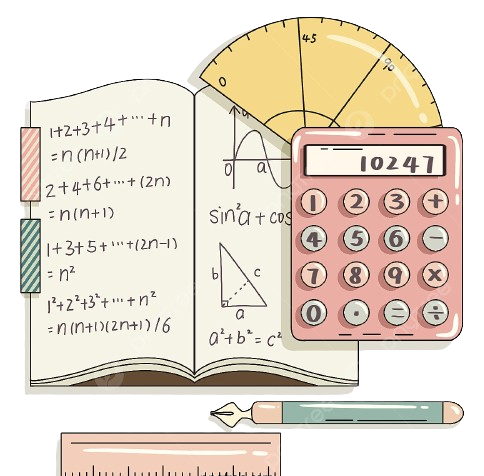 0
45
90
1+2+3+4+···+n
=n(n+1)/2
2+4+6+···+(2n)
=n(n+1)
1+3+5+···+(2n-1)
=n²
1²+2²+3²+···+n²
=n(n+1)(2n+1)/6
a
0 a
sin²a+cos
b c
a
a²+b²=c²
10247
1 2 3 +
4 5 6 −
7 8 9 ×
0 · = ÷